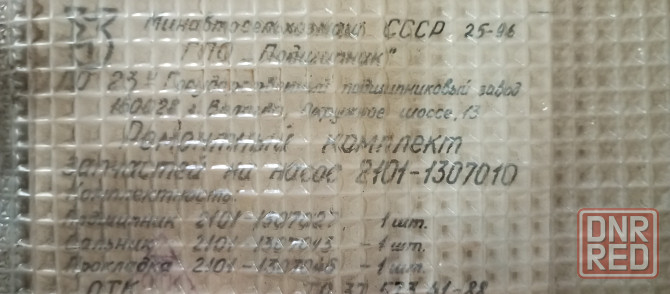 Минавтосельхозмаш СССР 25-96
ГПО Подшипник"
ПО 23й Государственный подшипниковый завод
160028 г Вологда, Окружное шоссе, 13
Ремонтный комплект
запчастей на насос 2101-1307010
Комплектность:
Подшипник 2101-1307027 - 1 шт.
Сальник 2101-1307043 - 1 шт.
Прокладка 2101-1307048 - 1 шт.
ОТК ТО 37 573-41-88
DNR
RED